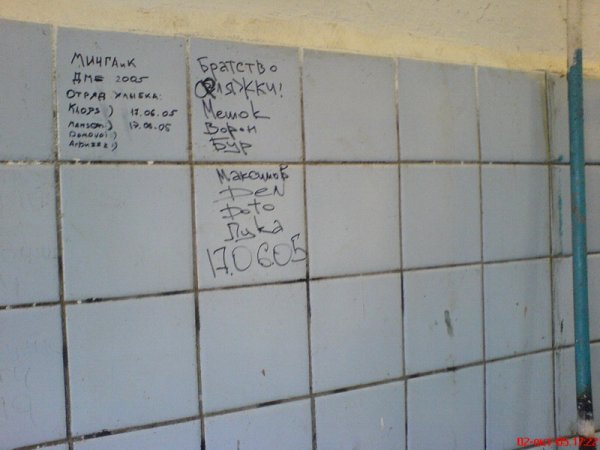 МИИГАиК
ДМБ 2005
ОТРЯД УЛЫБКА:
Klops :) 17.06.05
Manson :) 17.06.05
Domovoi :)
Arbuzek :)
Братство
ФЛЯЖКИ!
Мешок
Ворон
Бур
Максимов
Den
Фото
Лука
17.06.05
02-окт-05 17:22